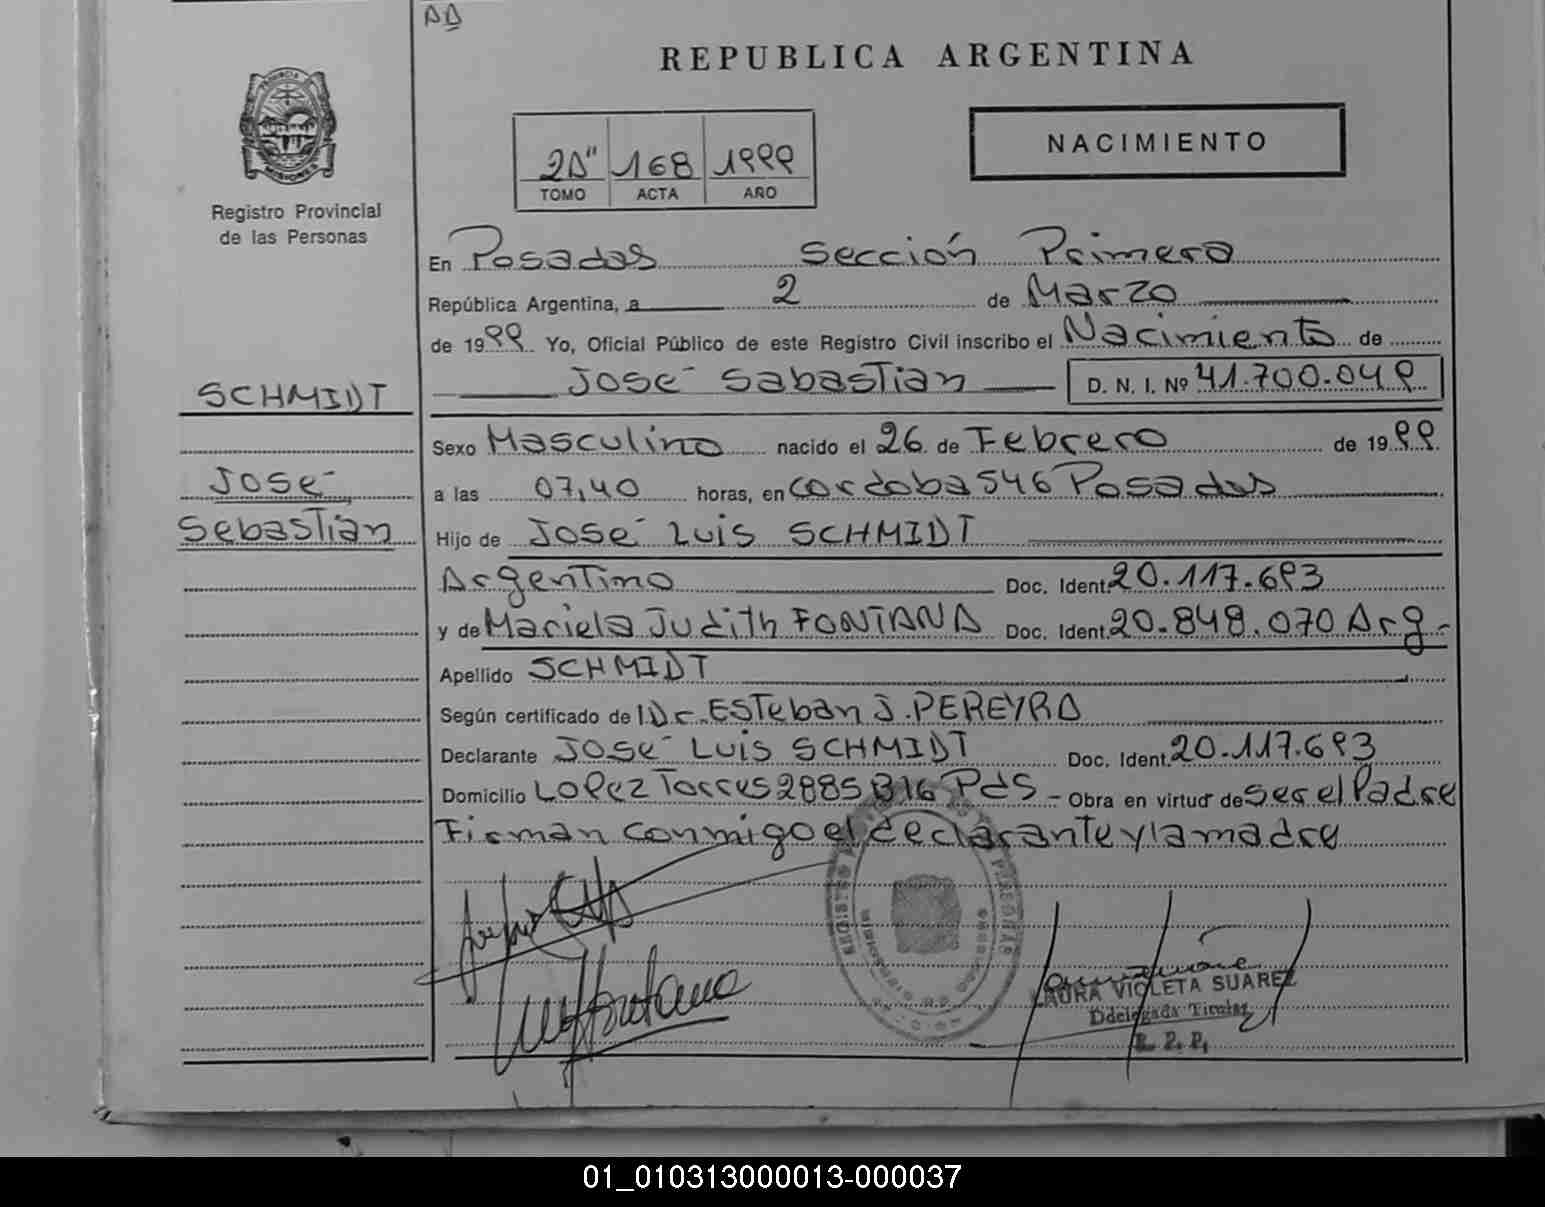 AA
REPUBLICA ARGENTINA
PROVINCIA
MISIONES
Registro Provincial
de las Personas
2A" 168 1999
TOMO ACTA AÑO
NACIMIENTO
En Posadas Sección Primera
República Argentina, a 2 de Marzo
de 1999 Yo, Oficial Público de este Registro Civil inscribo el Nacimiento de
José Sabastian D. N. I. Nº 41.700.049
SCHMIDT
Sexo Masculino nacido el 26 de Febrero de 1999
José
a las 07,40 horas, en cordoba 546 Posadas
Sebastian
Hijo de José Luis SCHMIDT
Argentino Doc. Ident. 20.117.693
y de Mariela Judith FONTANA Doc. Ident. 20.848.070 Arg.-
Apellido SCHMIDT
Según certificado del Dr. Esteban J. PEREYRA
Declarante José Luis SCHMIDT Doc. Ident. 20.117.693
Domicilio Lopez Torres 2885 B16 Pds - Obra en virtud de ser el Padre
Firman conmigo el declarante y la madre
LAURA VIOLETA SUAREZ
Ddelegada Titular
R. P. P.
01_010313000013-000037